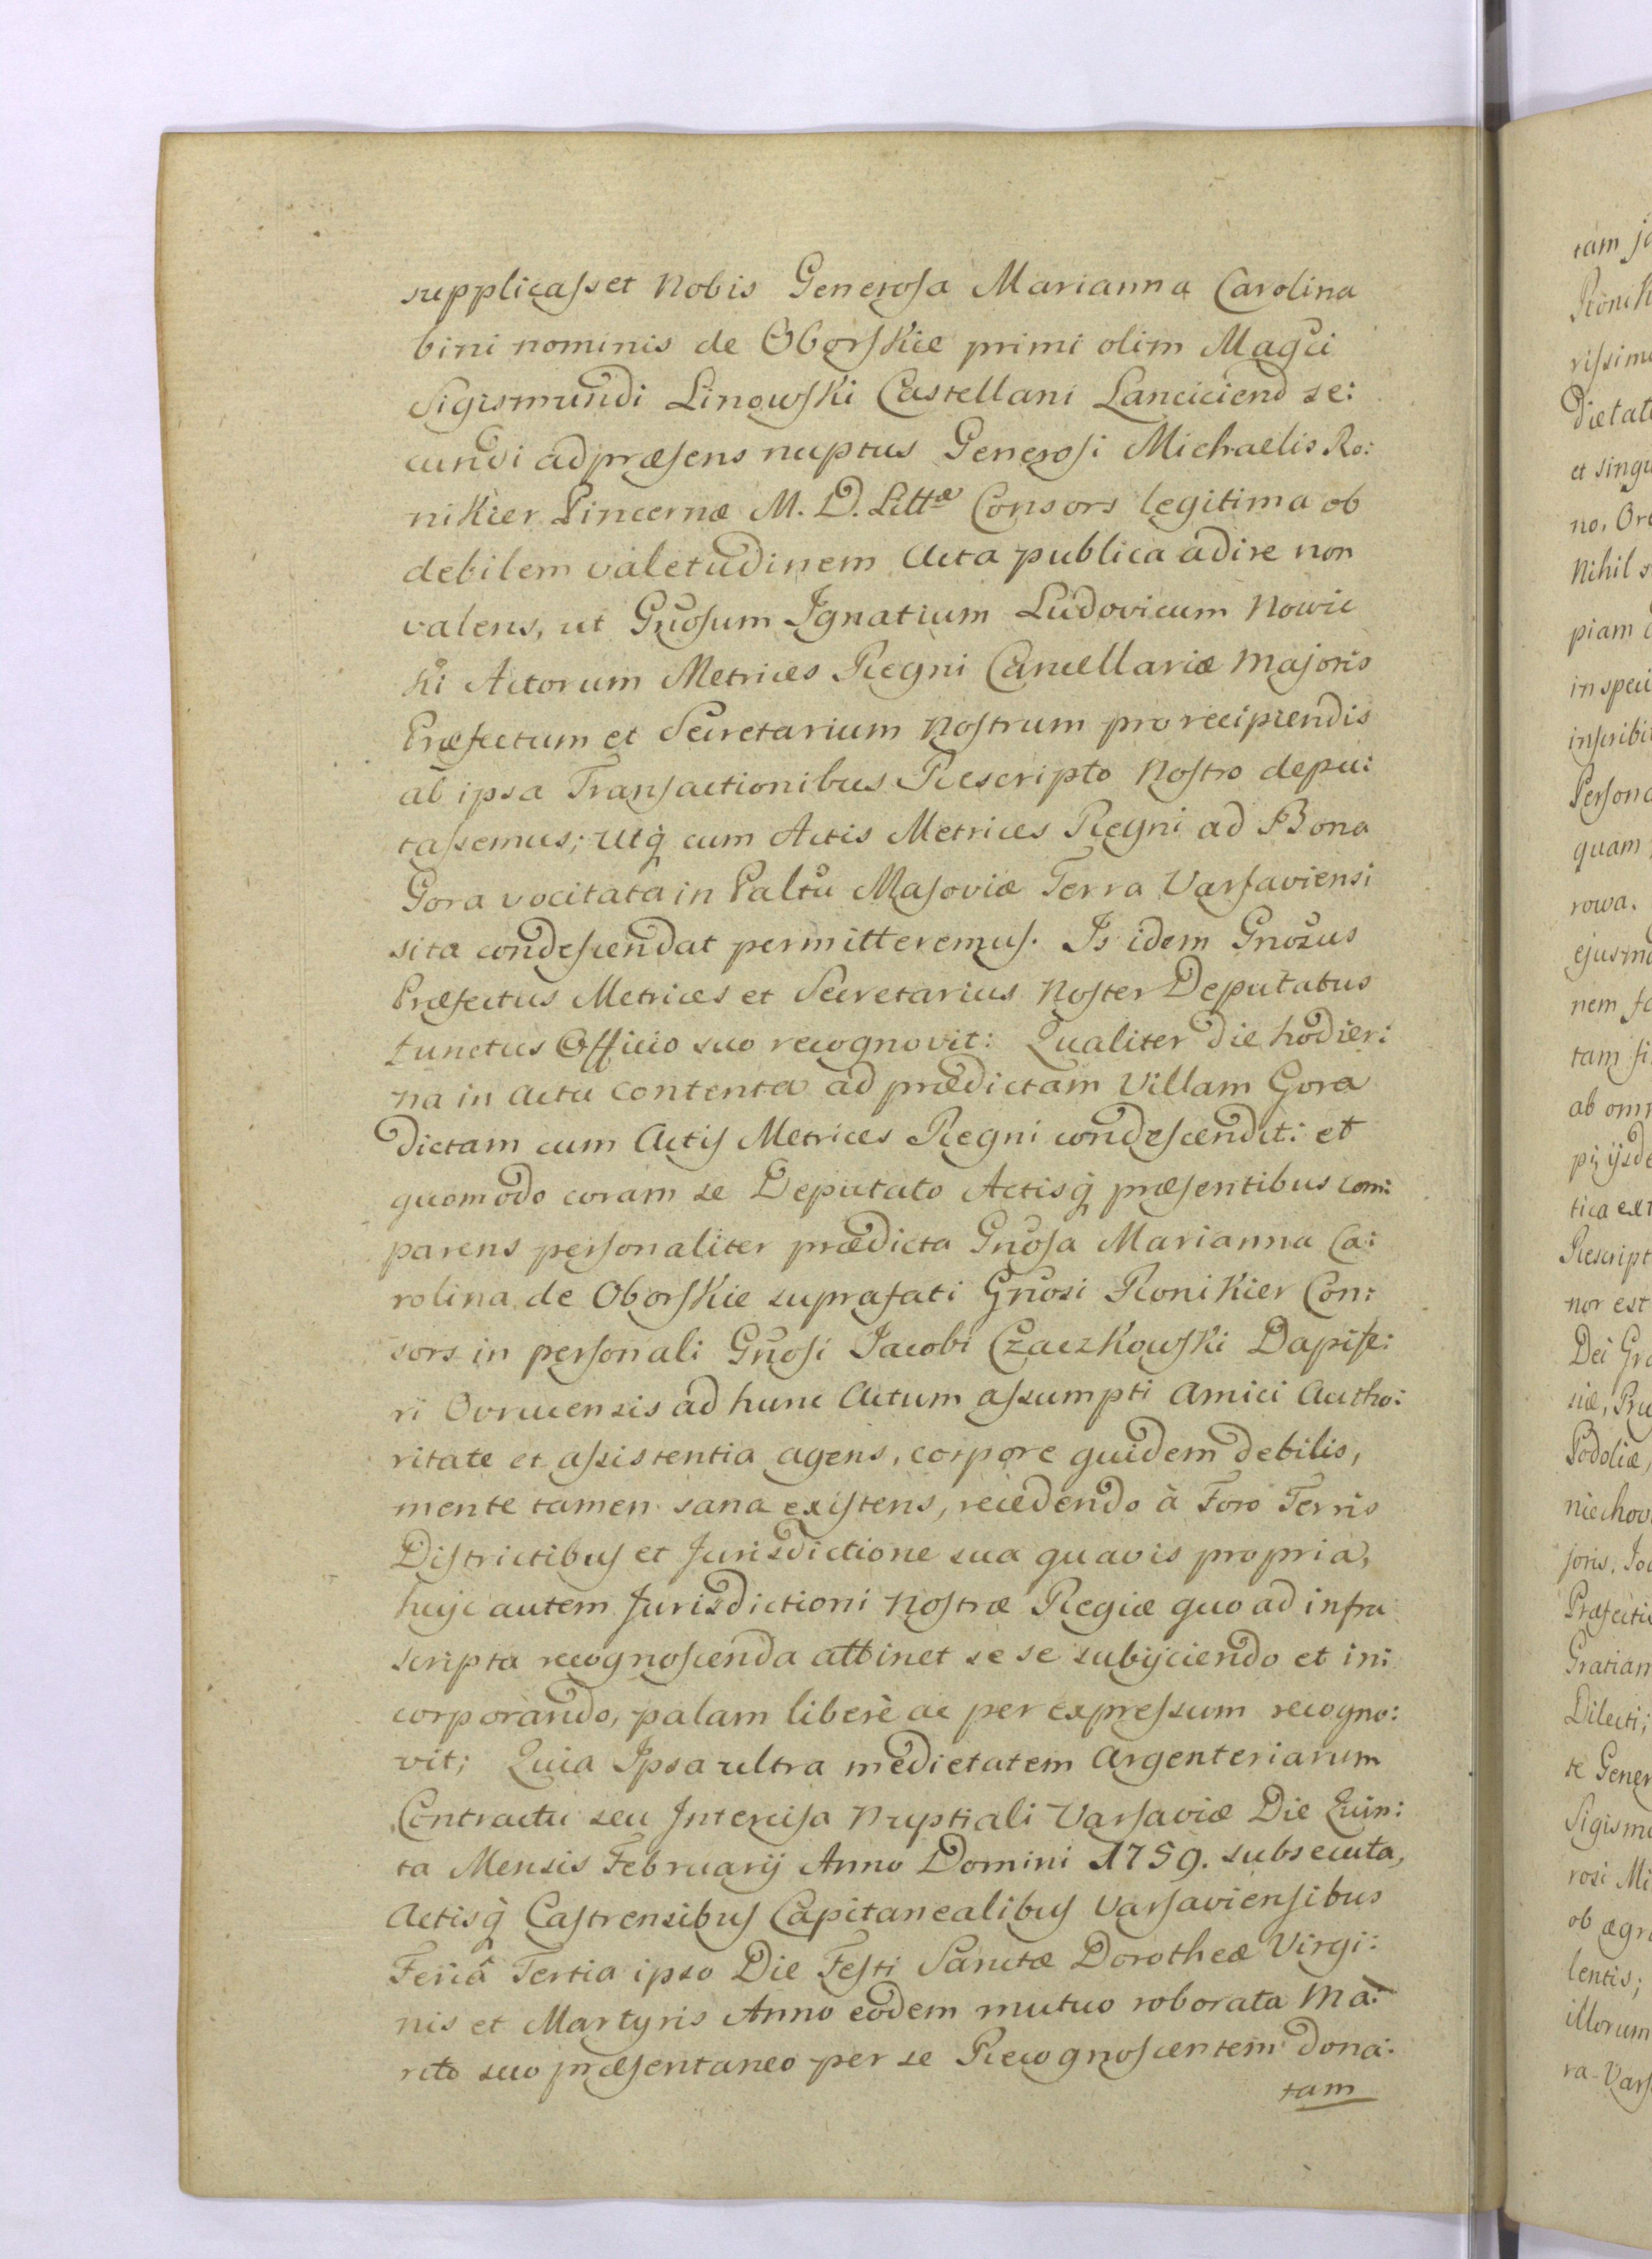 supplicaſset Nobis Generoſa Marianna Carolina
bini nominis de Oborſkie primi olim Magci
Sigismundi Linowſki Castellani Lanciciend se:
cundi ad præſens nuptus Generoſi Michaelis Ro:
nikier Pincernæ M. D. Littæ Consors legitima ob
debilem valetudinem Acta publica adire non
valens, ut Gnoſum Ignatium Ludovicum Nowic
ki Actorum Metrices Regni Cancellariæ Majoris
Præfectum et Secretarium Noſtrum pro recipiendis
ab ipsa Tranſactionibus Rescripto Noſtro depu:
taſsemus; Utq̀ cum Actis Metrices Regni ad Bona
Gora vocitata in Paltu Maſoviæ Terra Varſaviensi
sita condeſcendat permitteremuſ. Is idem Gnosus
Præfectus Metrices et Secretarius Noſter Deputatus
functus Officio suo recognovit: Qualiter Die hodier:
na in Actu contenta ad prædictam Villam Gora
dictam cum Actiſ Metrices Regni condeſcendit: et
quomodo coram se Deputato Actisq̀ præſentibus com:
parens perſonaliter prædicta Gnoſa Marianna Ca:
rolina de Oborſkie supraſati Gnosi Ronikier Con:
sors in perſonali Gnoſi Jacobi Czaczkowſki Dapife:
ri Ovrucensis ad hunc Actum aſsumpti Amici Autho:
ritate et aſsistentia agens, corpore quidem debilis,
mente tamen sana exiſtens, recedendo à Foro Terris
Diſtrictibuſ et Jurisdictione sua quavis propria,
huic autem Jurisdictioni Noſtræ Regiæ quo ad infra
scripta recognoſcenda attinet se se subijciendo et in:
corporando, palam liberè ac per expreſsum recogno:
vit; Quia Ipsa ultra medietatem Argenteriarum
Contractu seu Interciſa Nuptiali Varſaviæ Die Quin:
ta Mensis Februarij Anno Domini 1759. subsecuta,
Actisq̀ Caſtrensibuſ Capitanealibuſ Varſavienſibus
Feriâ Tertia ipso Die Feſti Sanctæ Dorotheæ Virgi:
nis et Martyris Anno eodem mutuo roborata Ma:
rito suo præſentaneo per se Recognoſcentem dona:
tam